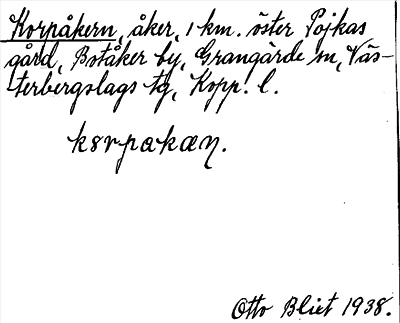 Korpåkern, åker, 1 km. öster Pojkas
gård, Botåker by, Grangärde sn, Väs-
terbergslags tg, Kopp. l.
kɤrpakæɳ.
Otto Blixt 1938.